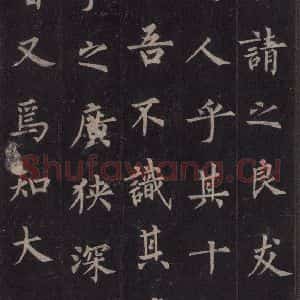 請之良友
人乎其十
吾不識其
之廣狹深
又焉知大
Shufawang.Cn